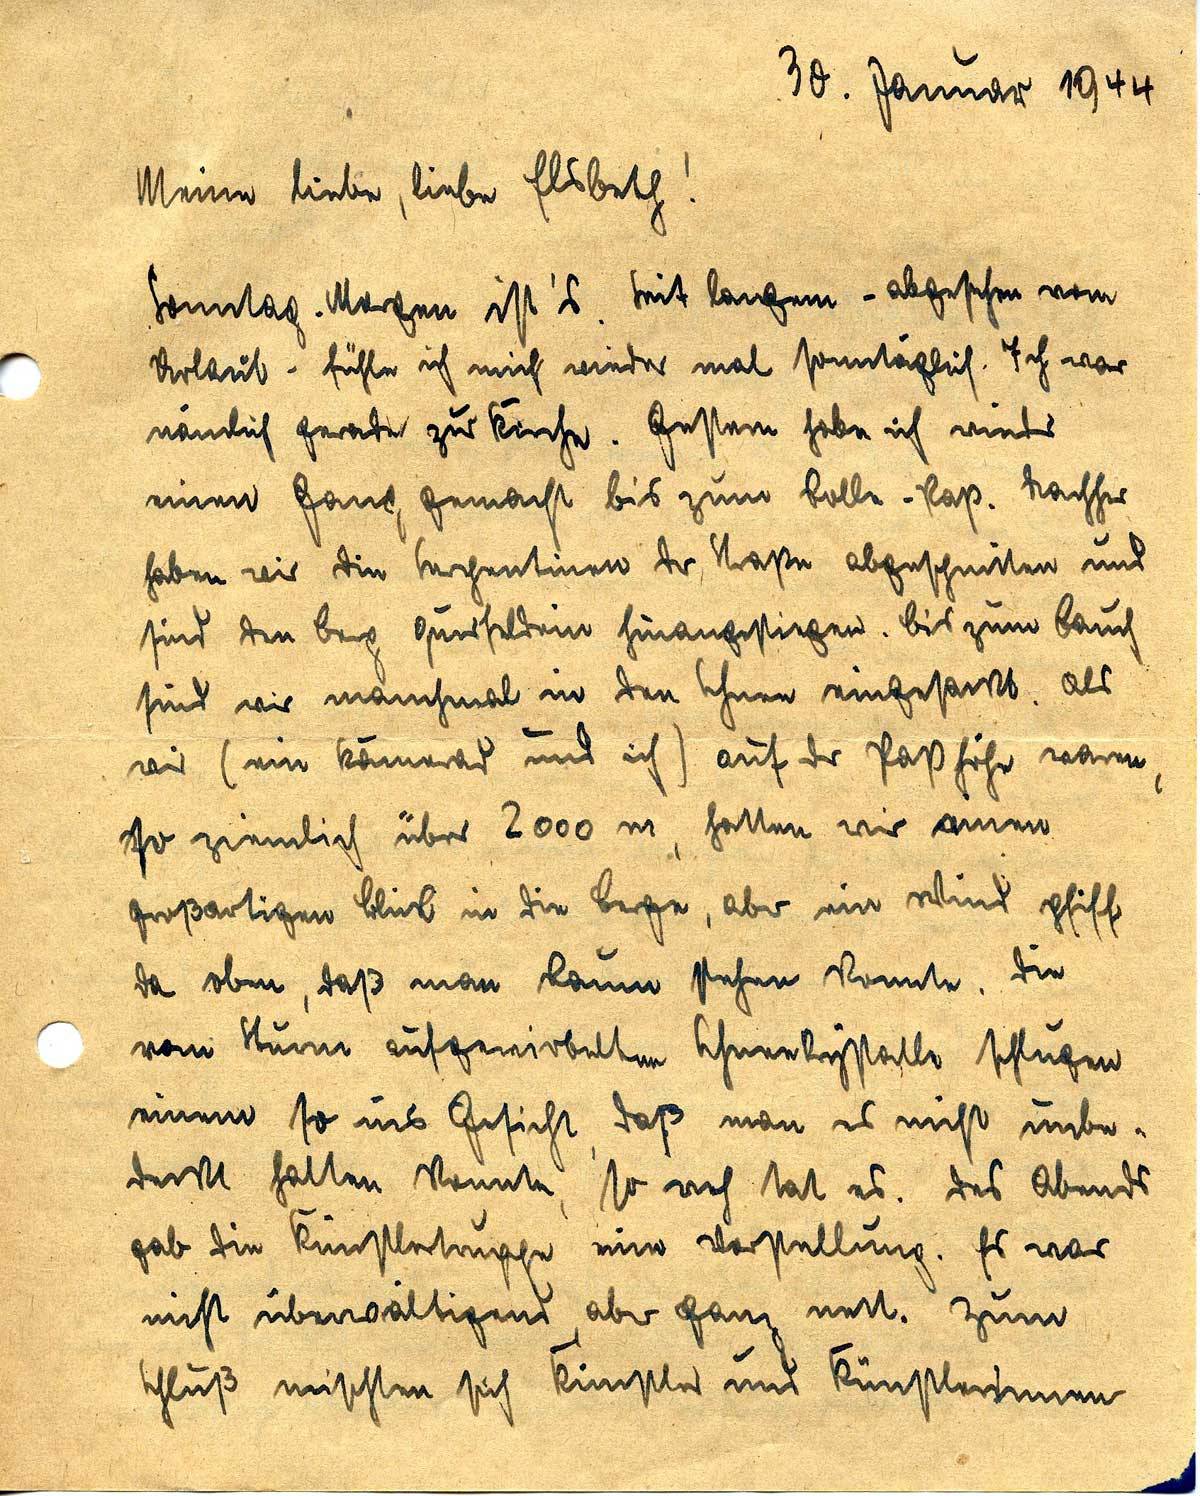 30. Januar 1944
Meine liebe, liebe Elsbeth!
Sonntag-Morgen ist's. Seit langem - abgesehen vom
Urlaub - fühle ich mich wieder mal sonntäglich. Ich war
nämlich gerade zur Kirche. Gestern habe ich wieder
einen Gang gemacht bis zum Rolle-Paß. Nachher
haben wir die Serpentinen der Straße abgeschnitten und
sind den Berg querfeldein hinangestiegen. Bis zum Bauch
sind wir manchmal in den Schnee eingesackt. Als
wir (ein Kamerad und ich) auf der Paßhöhe waren,
so ziemlich über 2000 m, hatten wir einen
großartigen Blick in die Berge, aber ein Wind pfiff
da oben, daß man kaum stehen konnte. Die
vom Sturm aufgewirbelten Schneekrystalle schlugen
einem so ins Gesicht, daß man es nicht unbe-
deckt halten konnte, so weh tat es. Des Abends
gab die Künstlertruppe eine Vorstellung. Es war
nicht überwältigend, aber ganz nett. Zum
Schluß mischten sich Künstler und Künstlerinnen